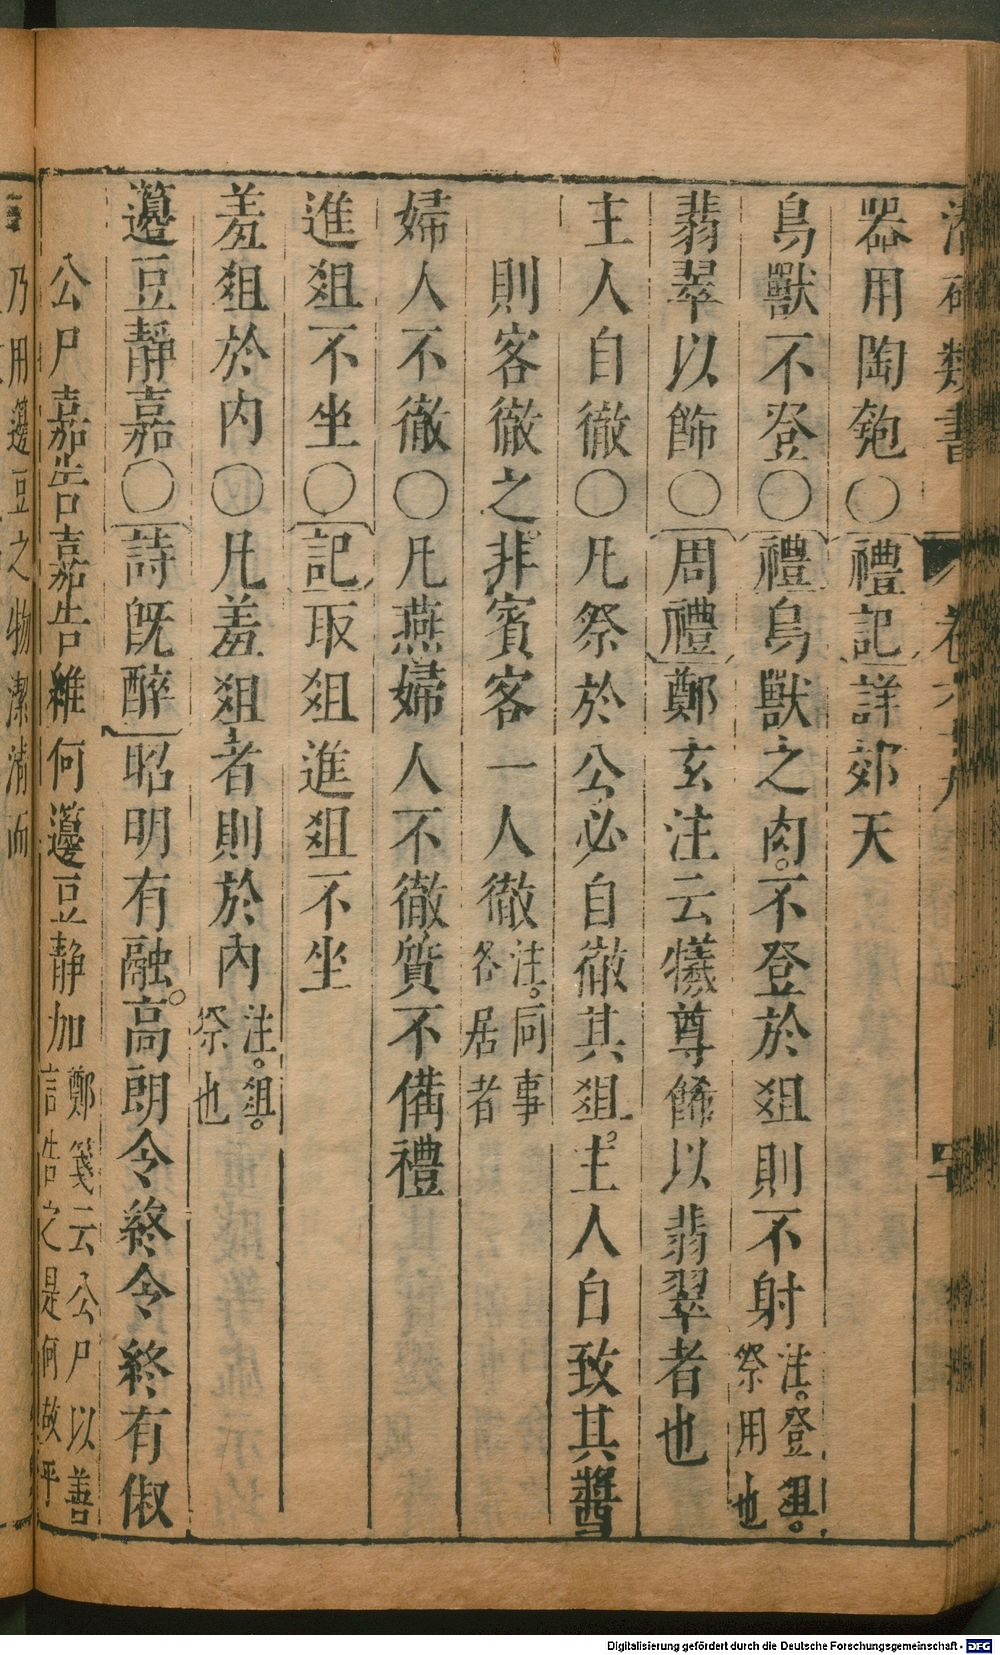 潛確類書 卷
器用陶匏○禮記詳郊天
鳥獸不登○禮鳥獸之肉。不登於爼則不射注。登爼。祭用也
翡翠以飾○周禮鄭玄注云犧尊餙以翡翠者也
主人自徹○凢祭於公必自徹其爼。主人自致其醬
則客徹之。非賓客一人徹注。同事各居者
婦人不徹○凢燕婦人不徹質不備禮
進爼不坐○記取爼進爼不坐
羞爼於内○凢羞爼者則於內注。爼。祭也
籩豆靜嘉○詩旣醉昭明有融。高朗令終令終有俶
公尸嘉告嘉告維何籩豆静加鄭箋云公尸以善言告之是何故乎
乃用籩豆之物潔清而
Digitalisierung gefördert durch die Deutsche Forschungsgemeinschaft - DFG